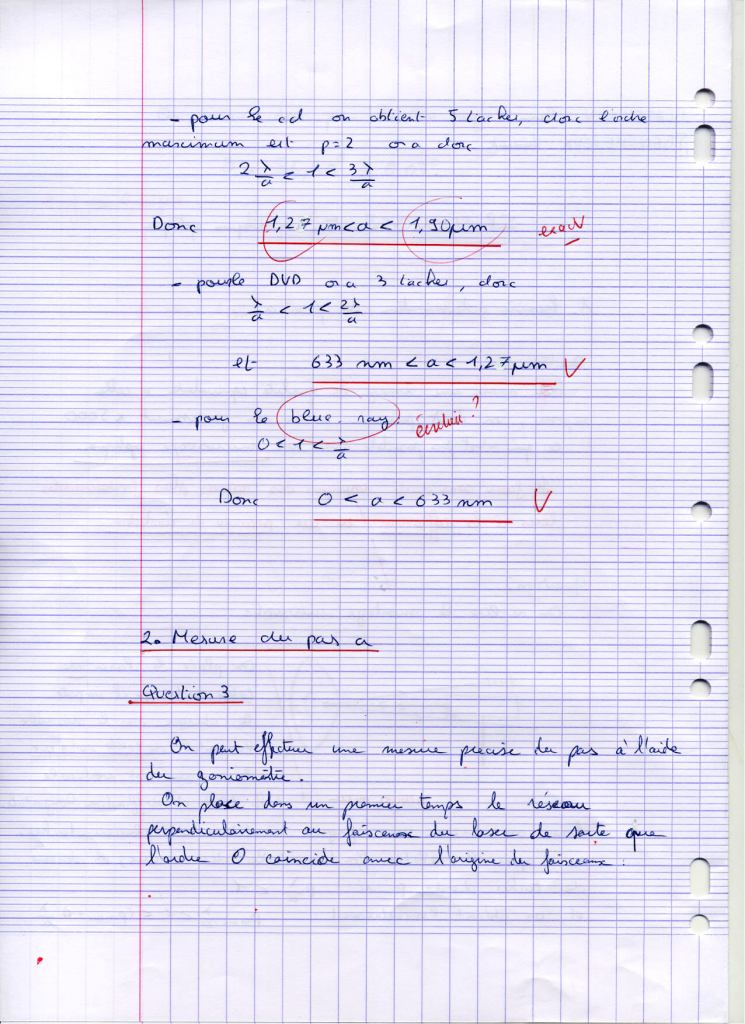 - pour le cd on obtient 5 taches, donc l'ordre
maximum est p=2 on a donc
2 λ/a < 1 < 3 λ/a
Donc 1,27 µm < a < 1,90 µm exact
- pour le DVD on a 3 taches, donc
λ/a < 1 < 2λ/a
et 633 nm < a < 1,27 µm V
- pour le blue. ray. ?
0 < 1 < λ/a
Donc 0 < a < 633 nm V
2. Mesure du pas a
Question 3
On peut effectuer une mesure precise du pas à l'aide
du goniomètre.
On place dans un premier temps le réseau
perpendiculairement au faisceau du laser de sorte que
l'ordre 0 coincide avec l'origine du faisceaux.